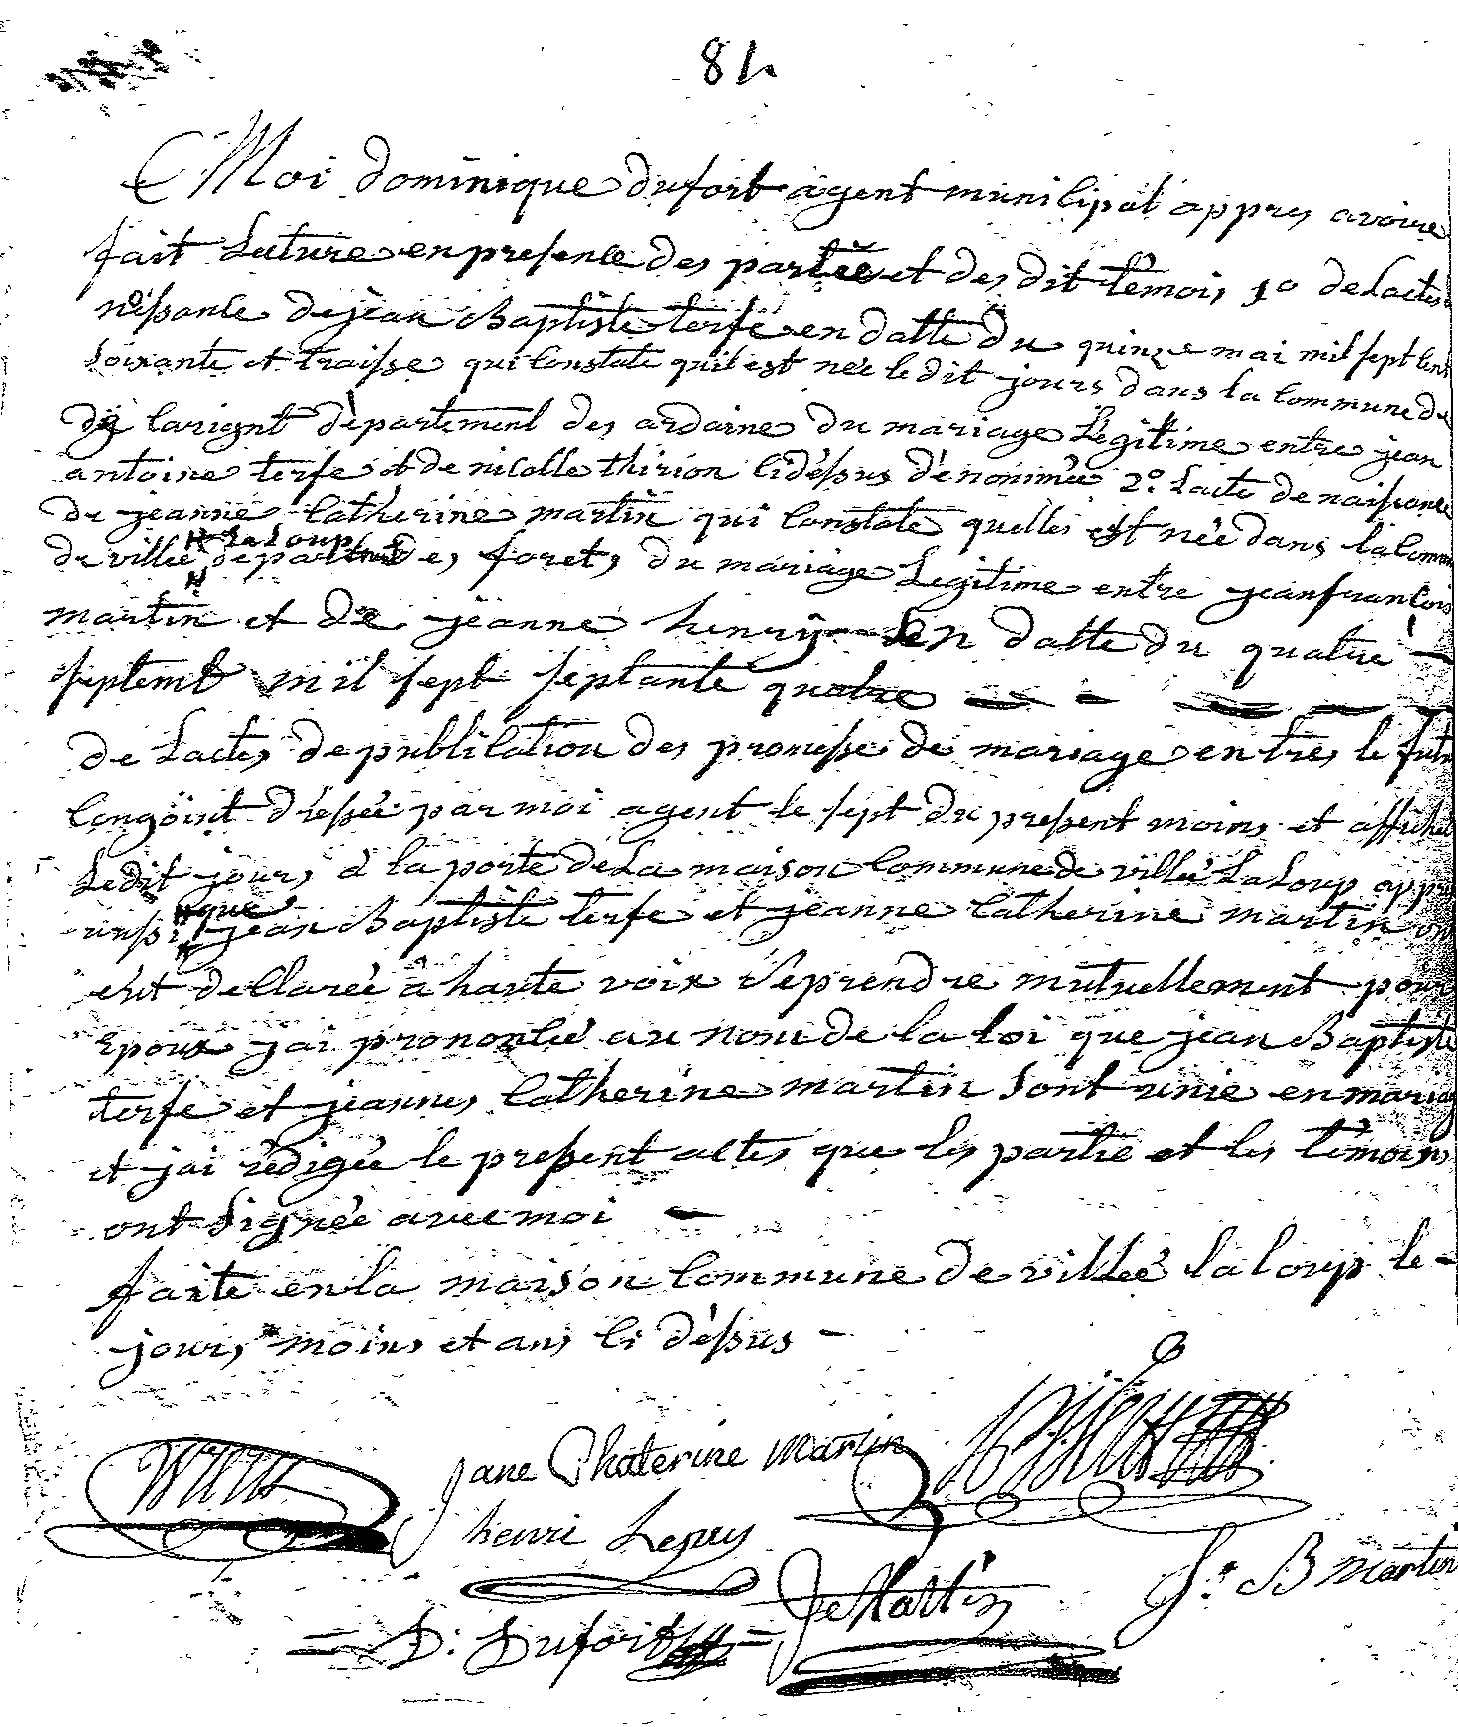 84
Moi dominique dufort agent municipal appres avoire
fait lecture en presence des partée et des dit temois 1o de lactes
néssance de jean Baptiste terfe en datte du quinze mai mil sept cent
soixante et traisse qui constate quil est née le dit jours dans la commune de
de larignt département des ardaine du mariage légitime entre jean
antoine terfe et de nicolle thirion cidéssus dénommée 2o. lacte de naissance
de jeanne catherine martin qui constate quelles est née dans la comm
la Loup
de villée departmt des forets du mariage Legitime entre jean francois
martin et de jeanne henry en datte du quatre
septemb mil sept septante quatre
de lactes de publication des promesse de mariage entres le futu
congoint dressée par moi agent le sept du present moins et affichee
Ledit jours a la porte de la maison commune de villée La Loup appre
que
insi jean Baptiste terfe et jeanne catherine martin on
ent declarée a haute voix se prendre mutuellement pour
Epoux jai prononcée au nom de la loi que jean Baptiste
terfe et jeannes catherine martin sont unie en mariag
et jai rédigée le present actes que les partie et les témoins
ont signée avec moi
faite en la maison commune de villée la loup le
jours moins et ans ci déssus
Jane Chaterine Martin
henri Lepuy
J. B martin
D. Dufort
Je Martin